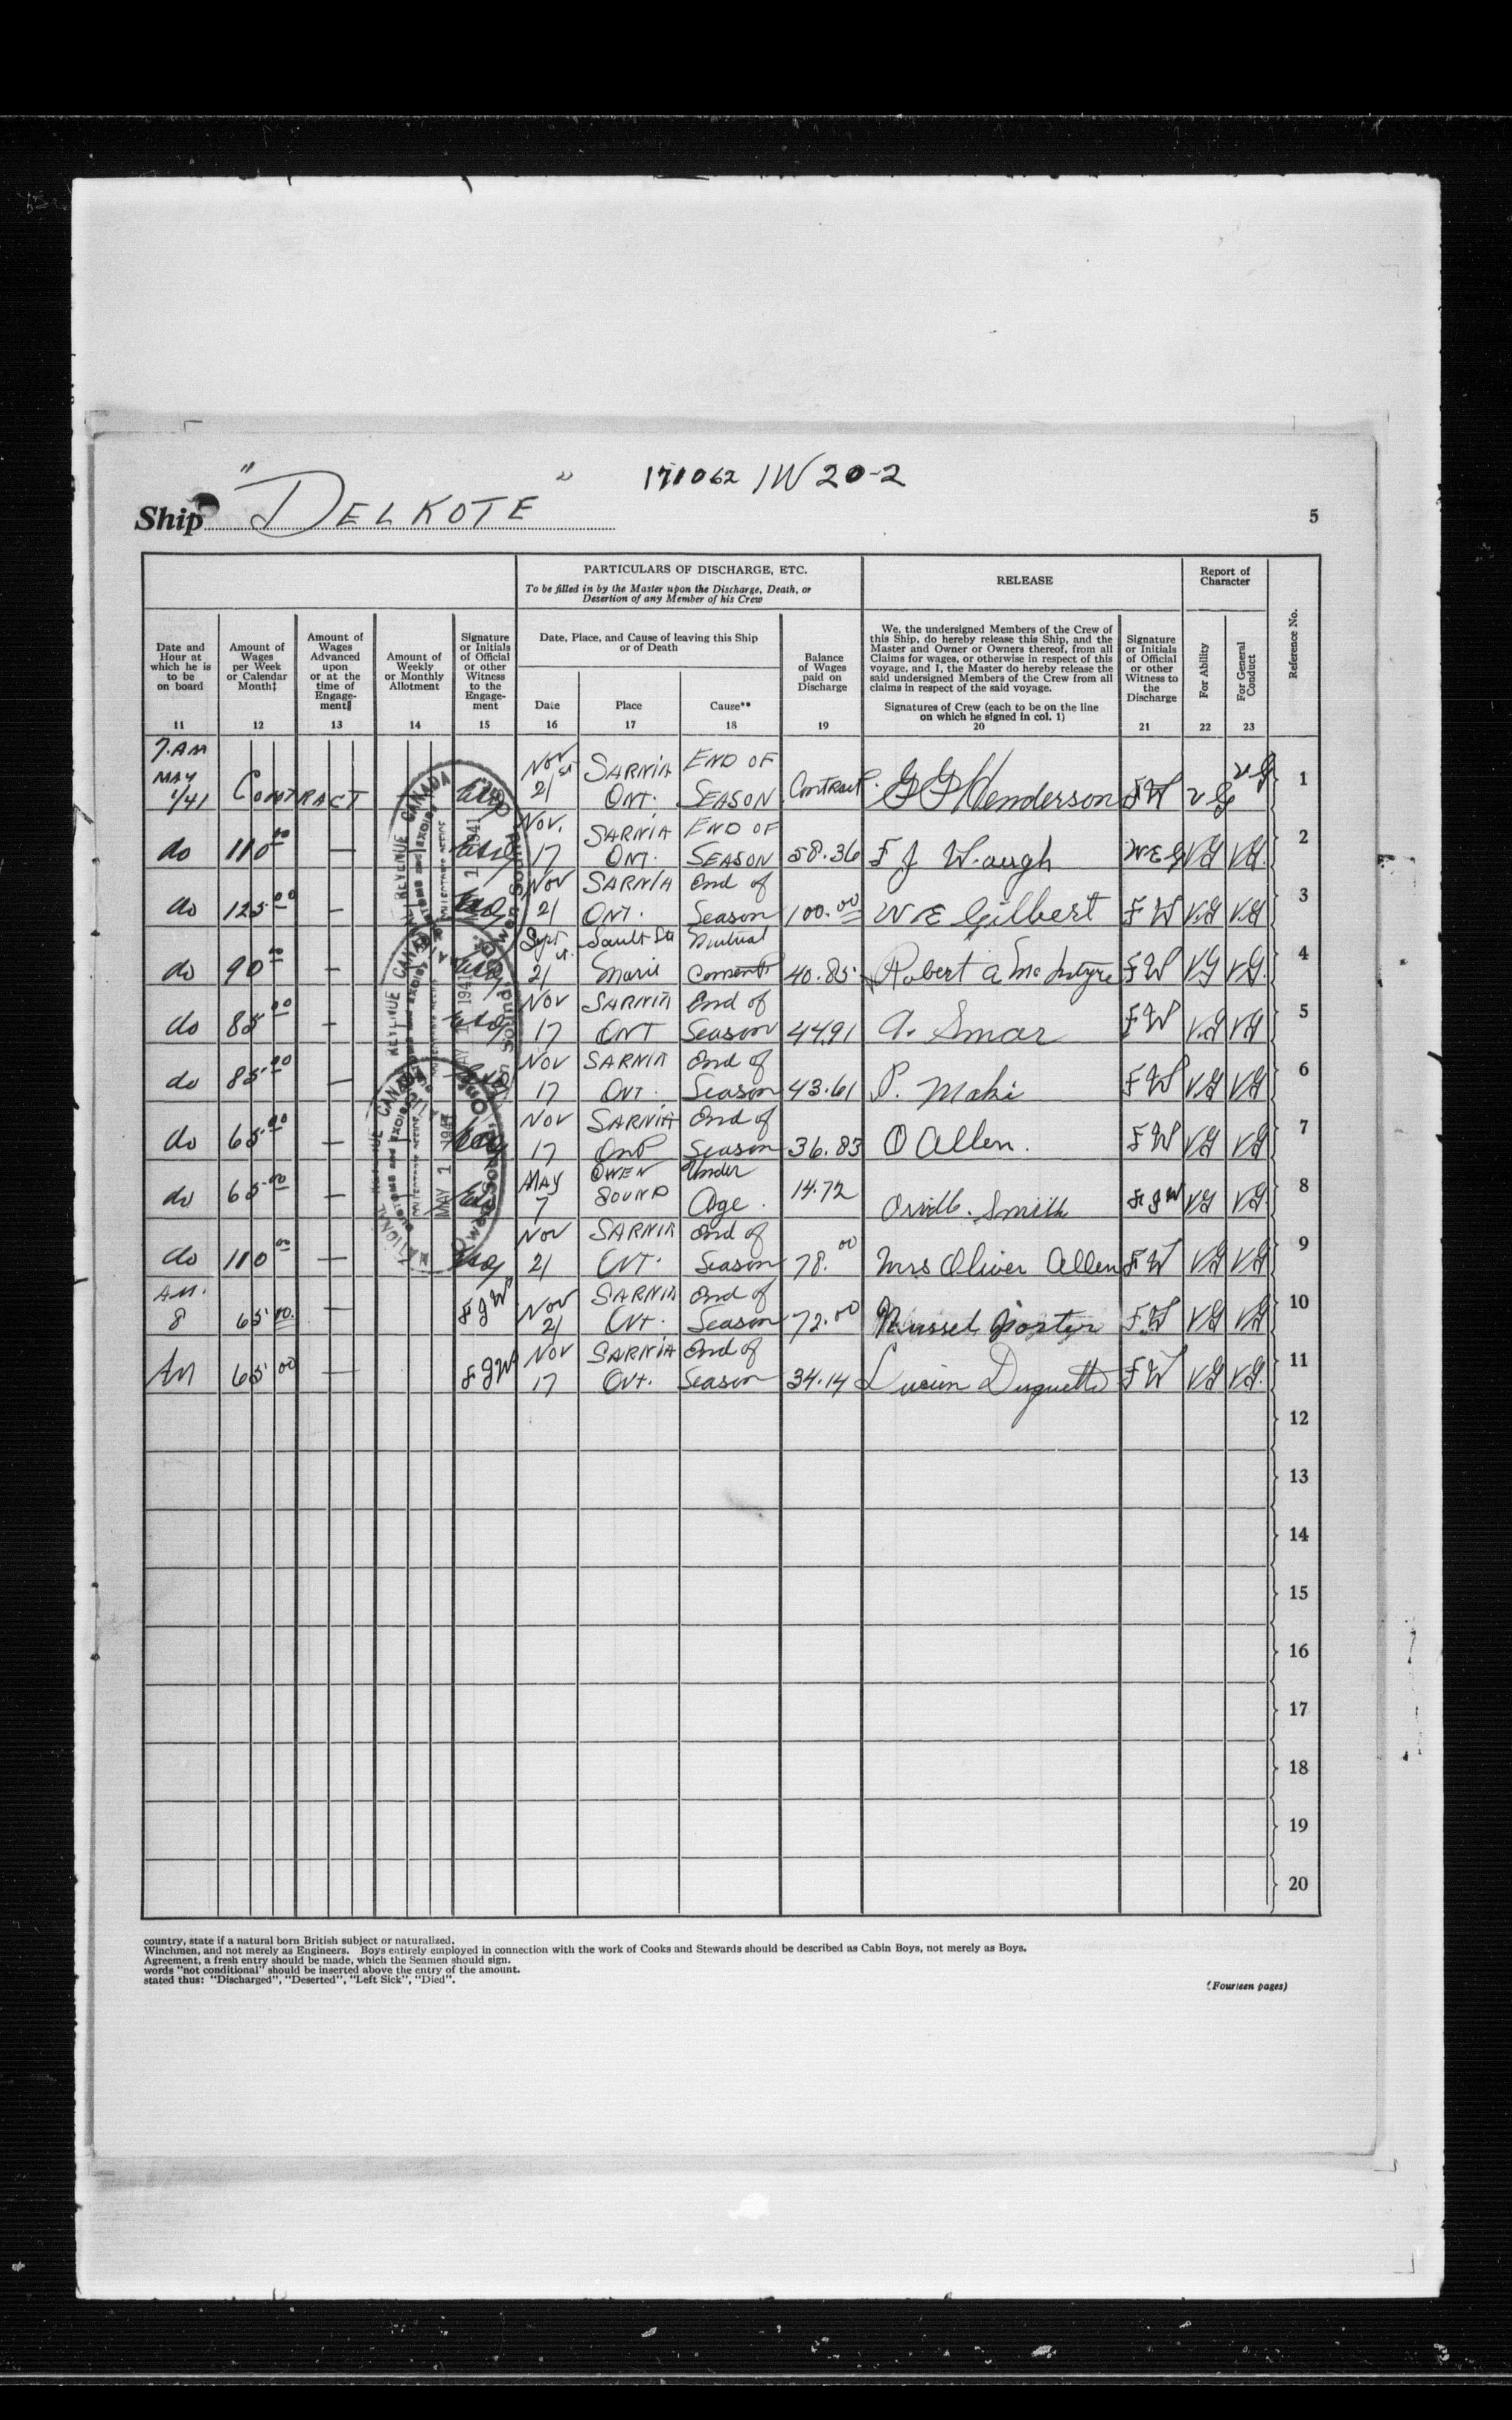 171062 1W 20-2
Ship "DELKOTE"
5
PARTICULARS OF DISCHARGE, ETC.
To be filled in by the Master upon the Discharge, Death, or
Desertion of any Member of his Crew
RELEASE
Report of
Character
Reference No.
Date and
Hour at
which he is
to be
on board
11
Amount of
Wages
per Week
or Calendar
Month‡
12
Amount of
Wages
Advanced
upon
or at the
time of
Engage-
ment‖
13
Amount of
Weekly
or Monthly
Allotment
14
Signature
or Initials
of Official
or other
Witness
to the
Engage-
ment
15
Date, Place, and Cause of leaving this Ship
or of Death
Date
16
Place
17
Cause**
18
Balance
of Wages
paid on
Discharge
19
We, the undersigned Members of the Crew of
this Ship, do hereby release this Ship, and the
Master and Owner or Owners thereof, from all
Claims for wages, or otherwise in respect of this
voyage, and I, the Master do hereby release the
said undersigned Members of the Crew from all
claims in respect of the said voyage.
Signatures of Crew (each to be on the line
on which he signed in col. 1)
20
Signature
or Initials
of Official
or other
Witness to
the
Discharge
21
For Ability
22
For General
Conduct
23
7.AM MAY 1/41 CONTRACT Nov 21st SARNIA ONT. END OF SEASON Contract. G G Henderson FW VG VG 1
do 110 00 — Nov. 17 SARNIA ONT. END OF SEASON 58.36 F J Waugh W E G VG VG. 2
do 125 00 — Nov 21 SARNIA ONT. End of Season 100.00 W E Gilbert FW V.G V.G 3
do 90 00 — Sept 21st. Sault Ste Marie Mutual Consent 40.85 Robert A McIntyre FW VG VG. 4
do 85 00 — Nov 17 SARNIA ONT End of Season 44.91 A. Smar FW V.G VG 5
do 85 00 — Nov 17 SARNIA ONT. End of Season 43.61 P. Maki FW VG VG 6
do 65 00 — Nov 17 SARNIA Ont End of Season 36.83 O Allen. FW VG VG 7
do 65 00 — MAY 7 OWEN SOUND Under Age. 14.72 Orvill. Smith F J W VG VG 8
do 110 00 — Nov 21 SARNIA ONT. End of Season 78.00 Mrs Oliver Allen FW VG VG 9
A.M. 8 65 00. — F J W Nov 21 SARNIA Ont. End of Season 72.00 Russel Porter FW VG VG 10
AM 65 00 — F J W Nov 17 SARNIA Ont. End of Season 34.14 Lucien Duquette FW VG VG. 11
12
13
14
15
16
17
18
19
20
NATIONAL REVENUE CANADA
CUSTOMS AND EXCISE
MAY 1 1941
Owen Sound, Ont.
country, state if a natural born British subject or naturalized.
Winchmen, and not merely as Engineers. Boys entirely employed in connection with the work of Cooks and Stewards should be described as Cabin Boys, not merely as Boys.
Agreement, a fresh entry should be made, which the Seamen should sign.
words "not conditional" should be inserted above the entry of the amount.
stated thus: "Discharged", "Deserted", "Left Sick", "Died".
(Fourteen pages)